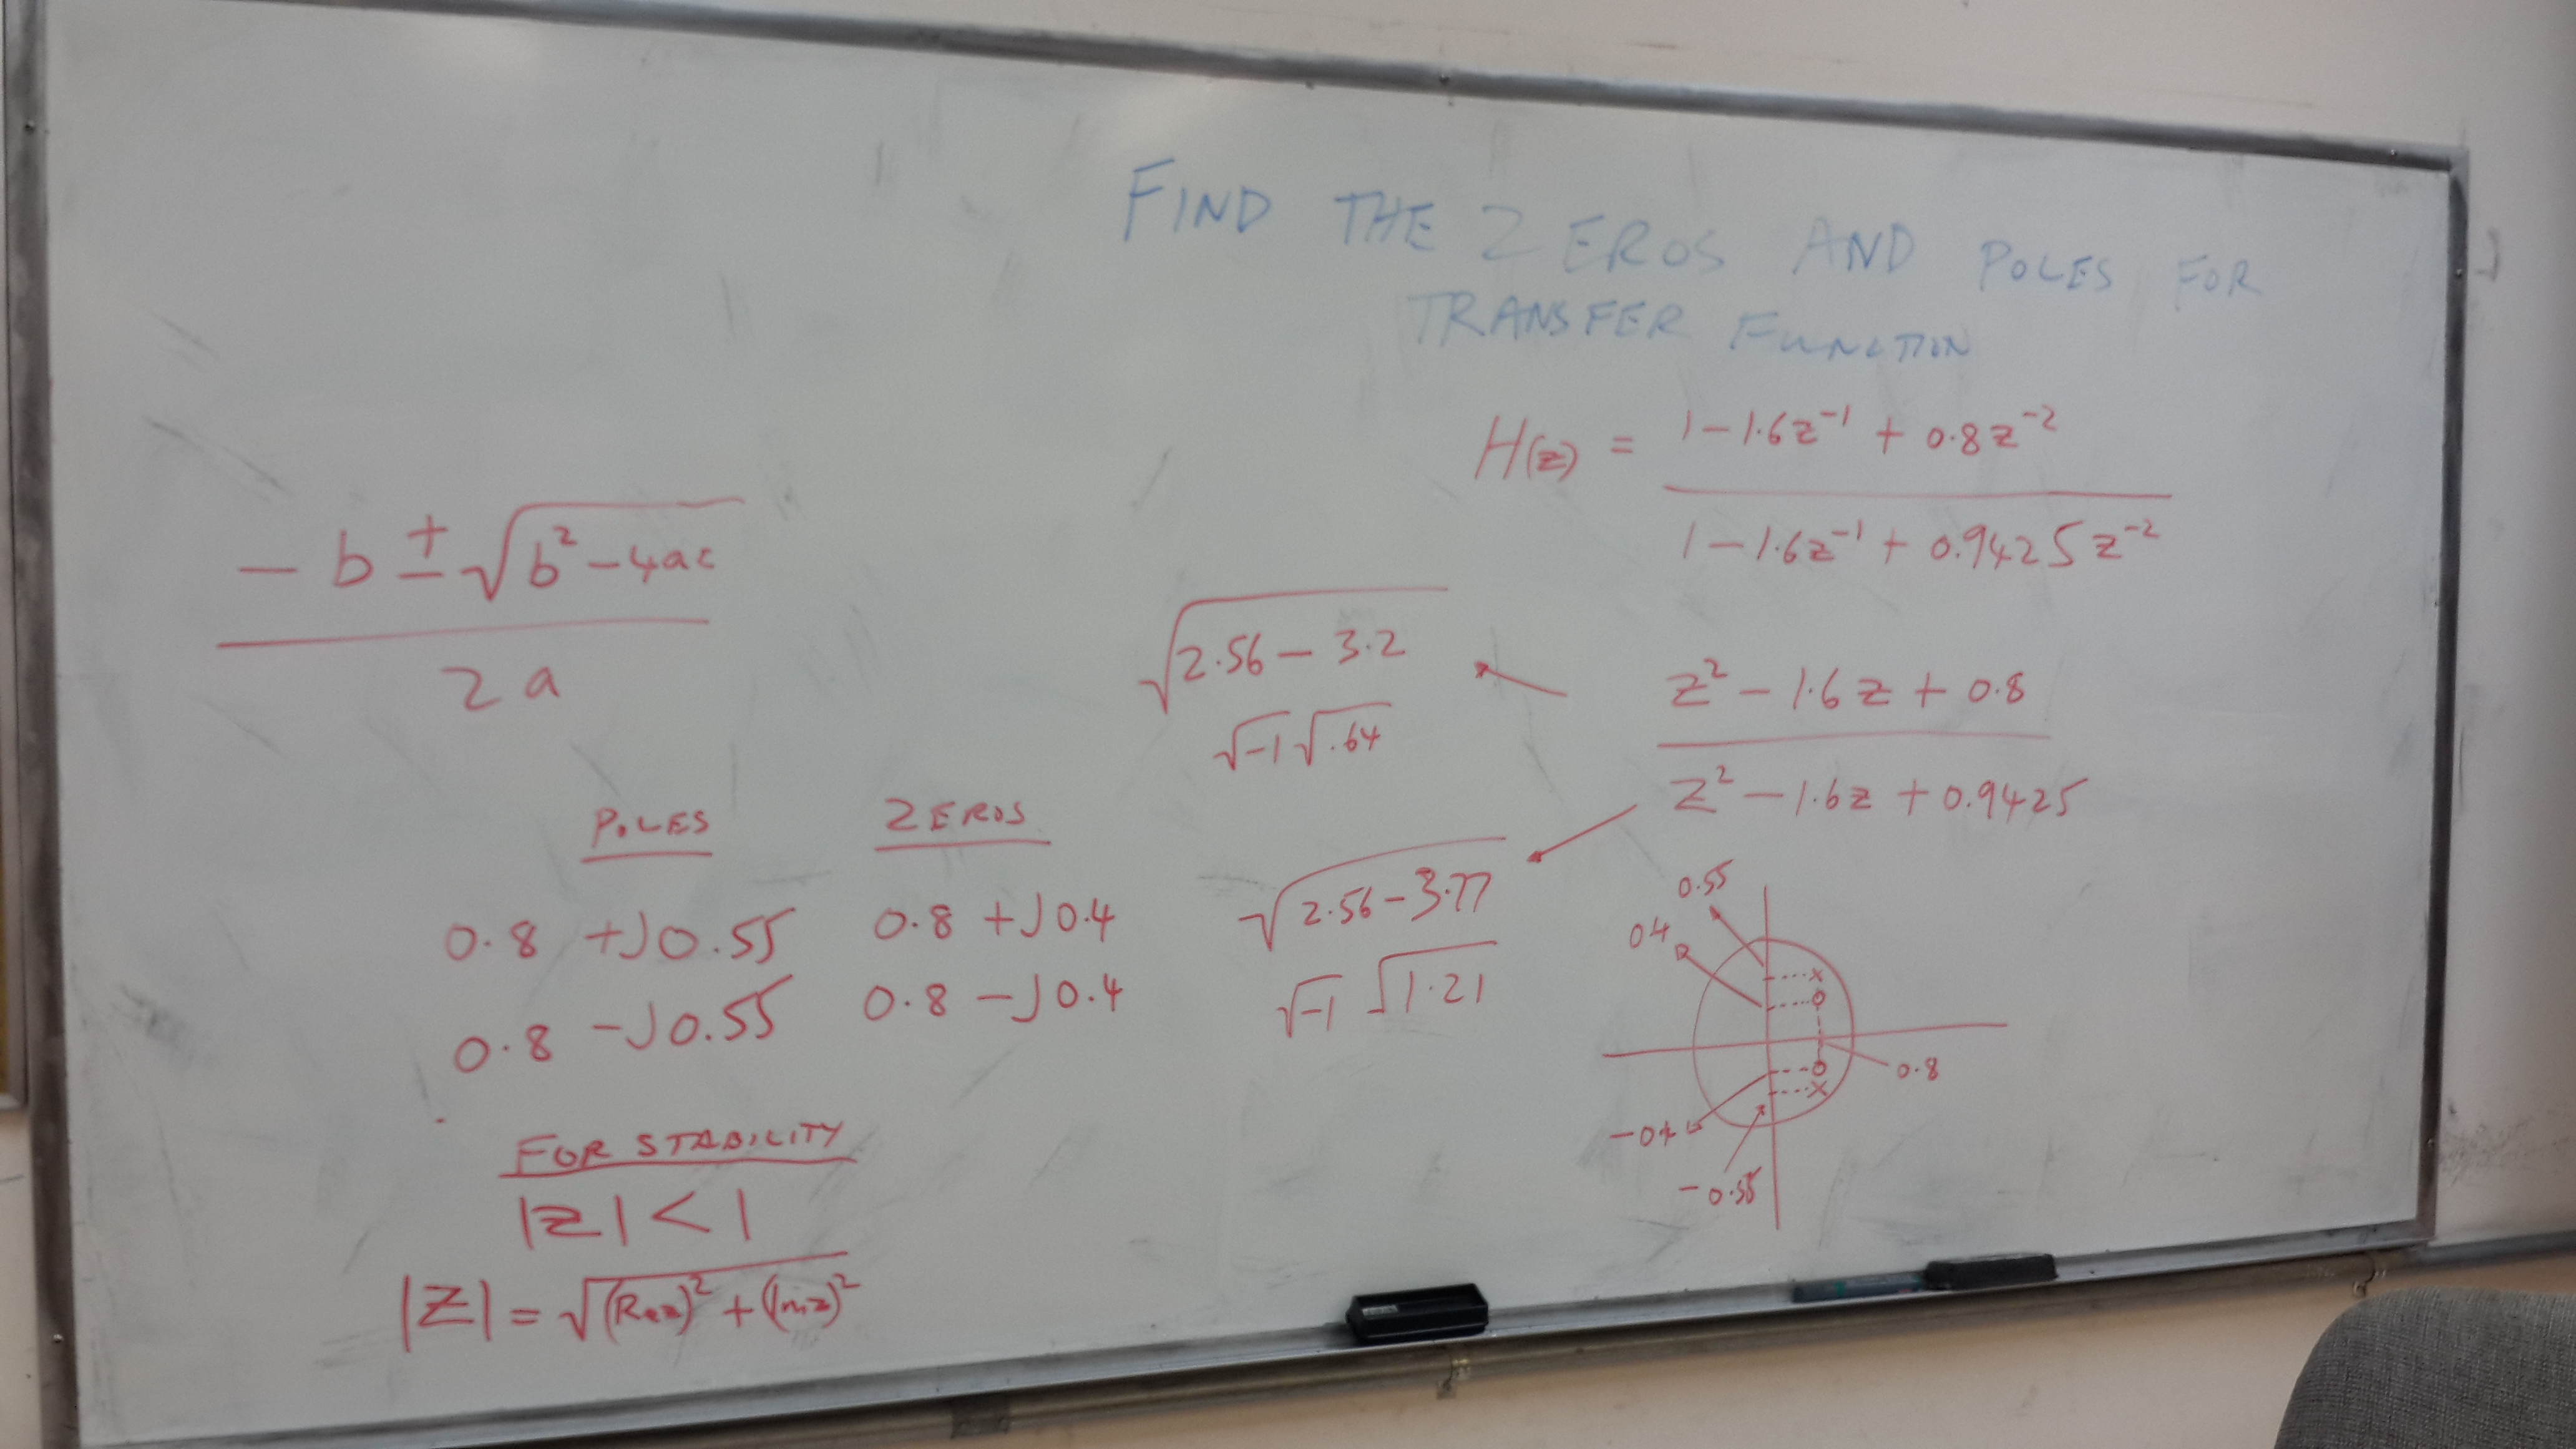 FIND THE ZEROS AND POLES FOR
TRANSFER FUNCTION
H(z) = 1 - 1.6z⁻¹ + 0.8z⁻²
1 - 1.6z⁻¹ + 0.9425z⁻²
- b ± √b² - 4ac
2a
√2.56 - 3.2
√-1 √.64
z² - 1.6z + 0.8
z² - 1.6z + 0.9425
√2.56 - 3.77
√-1 √1.21
POLES
0.8 + J0.55
0.8 - J0.55
ZEROS
0.8 + J0.4
0.8 - J0.4
0.55
0.4
0.8
-0.4
-0.55
FOR STABILITY
|z| < 1
|z| = √(Rez)² + (Imz)²